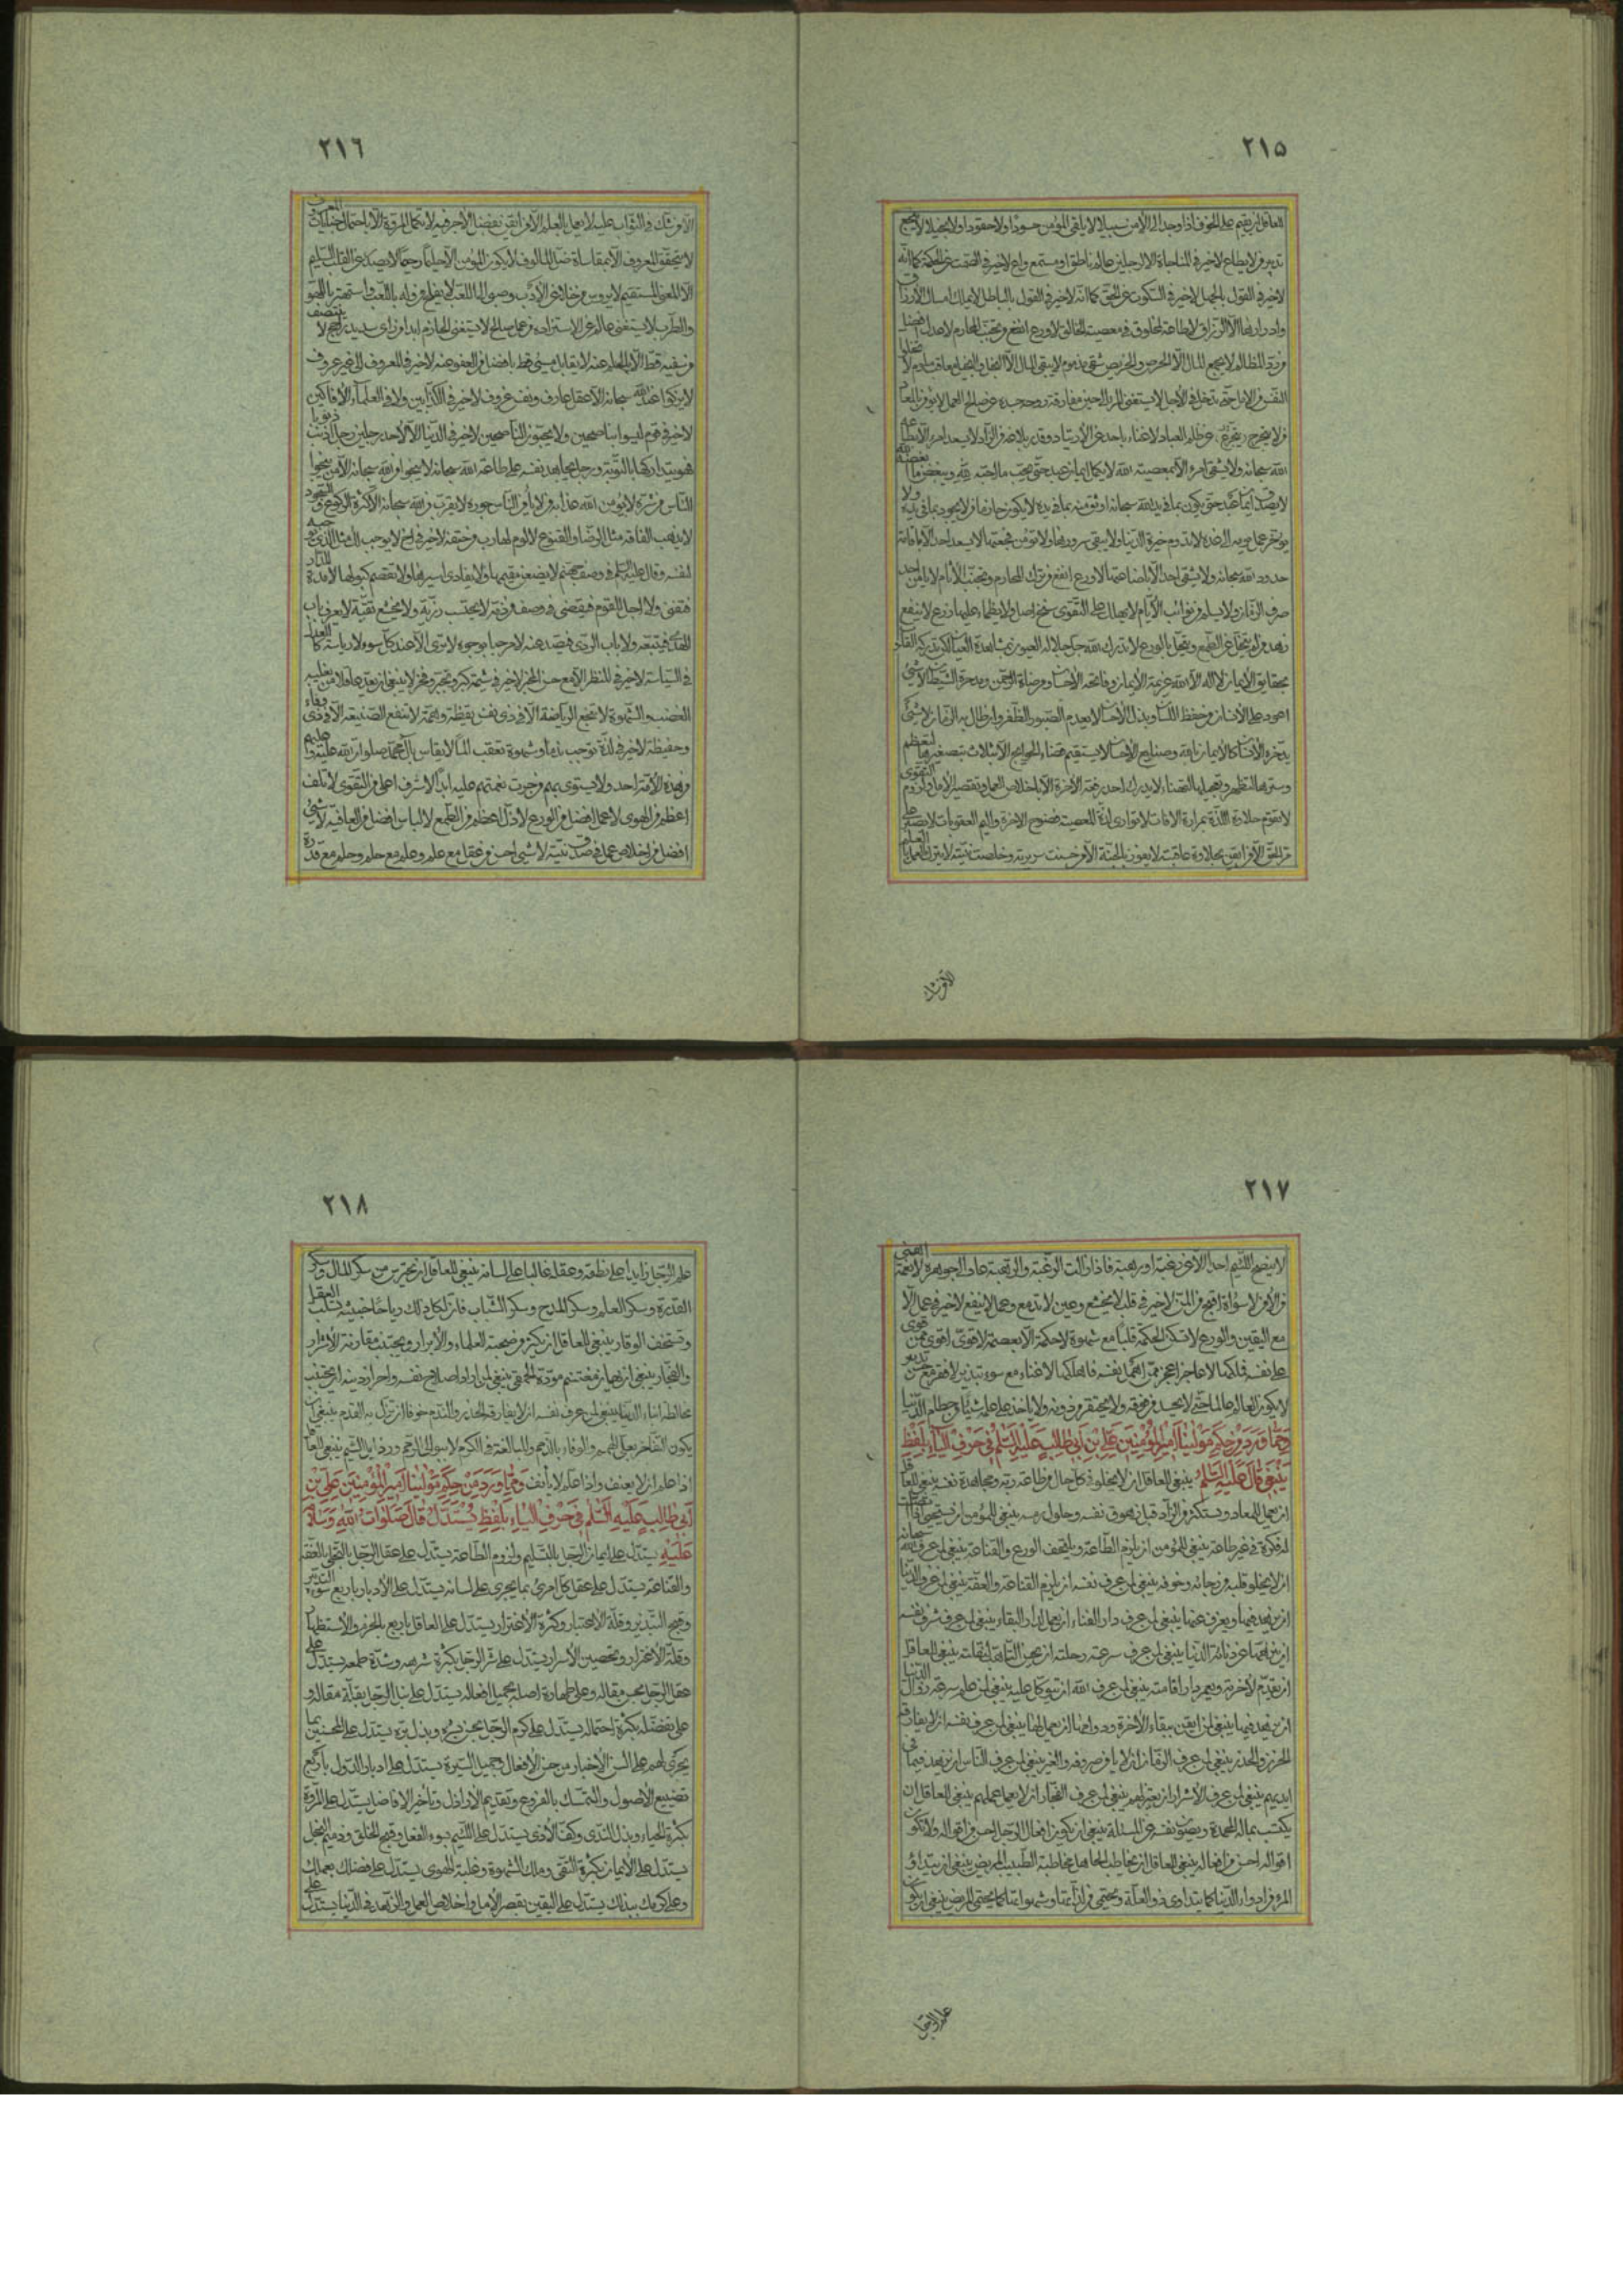 ٢١٥
للعاقل ان يقيم على الخوف اذا وجد الى الأمن سبيلا لا يلقى المؤمن حسودا ولا حقودا ولا بخيلا لا
تدبير لمن لا يطاع لا خير في المناجاة الا لرجلين عالم ناطق او مستمع واع لا خير في الصمت عن الحكمة كما انه
لا خير في القول بالجهل لا خير في السكوت عن الحق كما انه لا خير في القول بالباطل لا يملك امساك الأرزاق
وادرارها الا الرزاق لا طاعة لمخلوق في معصية الخالق لا ورع انفع من تجنب المحارم لا عدل افضل
من رد المظالم لا يجمع المال الا الحرص والحريص شقي مذموم لا يبقي المال الا البخل والبخيل معاقب ملوم لا
الله سبحانه ولا يشقى امرء الا بمعصية الله لا يكمل ايمان عبد حتى يحب من احبه الله ويبغض من
لا يصدق ايمان عبد حتى يكون بما في يد الله سبحانه اوثق منه بما في يده
حدود الله سبحانه ولا يشقى احد الا باضاعتها لا ورع انفع من ترك المحارم وتجنب الآثام لا يأمن احد
صرف الزمان ولا يسلم من نوائب الأيام لا يهلك على التقوى سنخ اصل ولا يظمأ عليها زرع لا ينفع
زهد من لم يتخل عن الطمع ويتحل بالورع لا تدرك الله جل جلاله العيون بمشاهدة العيان لكن تدركه القلوب
بحقايق الأيمان لا اله الا الله عزيمة الأيمان وفاتحة الأحسان ومرضاة الرحمن ومدحرة الشيطان لا شيء
اعود على الأنسان من حفظ اللسان وبذل الأحسان لا يعدم الصبور الظفر وان طال به الزمان لا شيء
يدخره الأنسان كالأيمان بالله وصنايع الأحسان لا يستقيم قضاء الحوايج الا بثلاث بتصغيرها لتعظم
وسترها لتظهر وتعجيلها لتهنأ لا يدرك احد رفعة الآخرة الا باخلاص العمل وتقصير الأمل ولزوم التقوى
لا تقوم حلاوة اللذة بمرارة الآفات لا توازي لذة المعصية فضوح الآخرة واليم العقوبات لا يصبر على
مر الحق الا من ايقن بحلاوة عاقبته لا يفوز بالجنة الا من حسنت سريرته وخلصت نيته لا يترك العمل بالعلم
الا من شك
٢١٦
الا من شك في الثواب عليه لا يعمل بالعلم الا من ايقن بفضل الأجر فيه لا تكمل المروة الا باحتمال جنايات المعروف
لا يتحقق المعروف الا بمقاساة ضد المألوف لا يكون المؤمن الا حليما رحيما لا يصدر عن القلب السليم
الا المعنى المستقيم لا يرؤس من خلا عن الأدب وصبا الى اللعب لا يفلح من وله باللعب واستهتر باللهو
والطرب لا يستغني عالم عن الاستزادة من عمل صالح لا يستغني الحازم ابدا من رأي سديد راجح لا ينتصف
من سفيه قط الا بالحلم عنه لا يقابل مسيء قط بافضل من العفو عنه لا خير في المعروف الى غير عروف
لا يزكو عند الله سبحانه الا عقل عارف ونفس عزوف لا خير في الكذابين ولا في العلماء الأفاكين
لا خير في قوم ليسوا بناصحين ولا يحبون الناصحين لا خير في الدنيا الا لأحد رجلين رجل اذنب ذنوبا
فهو يتداركها بالتوبة ورجل يجاهد نفسه على طاعة الله سبحانه لا ينجو من الله سبحانه الا من ينجو
الناس من شره لا يؤمن الله عذابه من لا يأمن الناس جوره لا يقرب من الله سبحانه الا كثرة الركوع والسجود
لا يذهب الفاقة مثل الرضا والقنوع لا لوم لهارب من حتفه لا خير في اخ لا يوجب لك مثل الذي يوجبه
لنفسه وقال عليه السلم في وصف جهنم لا يظعن مقيمها ولا يفادى اسيرها ولا تقصم كبولها لا مدة للدار
فتفنى ولا اجل للقوم فيقضى في وصف من ذمه لا يحتسب رزية ولا يخشع تقية لا يعرف باب
الهدى فيتبعه ولا باب الردى فيصد عنه لا مرحبا بوجوه لا ترى الا عند كل سوء لا رياسة كالعدل
في السياسة لا خير في المنظر الا مع حسن المخبر لا خير في شيمة كبر وتجبر وفخر لا ينبغي ان يعد عاقلا من يغلبه
الغضب والشهوة لا تنجع الرياضة الا في ذي نفس يقظة وهمة لا تنفع الصنيعة الا في ذي وفاء
وحفيظة لا خير في لذة توجب ندما وشهوة تعقب الما لا يقاس بآل محمد صلوات الله عليه وعليهم
من هذه الأمة احد ولا يستوي بهم من جرت نعمتهم عليه ابدا لا شرف اعلى من التقوى لا تلف
اعظم من الهوى لا عمل افضل من الورع لا ذل اعظم من الطمع لا لباس افضل من العافية لا شيء
افضل من اخلاص عمل في صدق نية لا شيء احسن من عقل مع علم وعلم مع حلم وحلم مع قدرة
٢١٧
لا ينصح اللئيم احدا الا عن رغبة او رهبة فاذا زالت الرغبة والرهبة عاد الى جوهره لا نعمة اهنى
من الأمن لا سوأة اقبح من المن لا خير في قلب لا يخشع وعين لا تدمع وعمل لا ينفع لا خير في عمل الا
مع اليقين والورع لا تسكن الحكمة قلبا مع شهوة لا حكمة الا بعصمة لا قوي اقوى ممن قوى
على نفسه فملكها لا عاجز اعجز ممن اهمل نفسه فاهلكها لا غناء مع سوء تبذير لا فقر مع حسن تدبير
لا يكون العالم عالما حتى لا يحسد من فوقه ولا يحتقر من دونه ولا يأخذ على علمه شيئا من حطام الدنيا
ومما ورد من حكم مولينا امير المؤمنين علي بن ابي طالب عليه السلم في حرف الياء بلفظ
ينبغي قال عليه السلم ينبغي للعاقل ان لا يخلو في كل حال من طاعة ربه ومجاهدة نفسه ينبغي للعاقل
ان يعمل للمعاد ويستكثر من الزاد قبل زهوق نفسه وحلول رمسه ينبغي للمؤمن ان يستحيي اذا اتصلت
له فكرة في غير طاعة ينبغي للمؤمن ان يلزم الطاعة ويلتحف الورع والقناعة ينبغي لمن عرف الله سبحانه
ان لا يخلو قلبه من رجائه وخوفه ينبغي لمن عرف نفسه ان يلزم القناعة والعفة ينبغي لمن عرف الدنيا
ان يزهد فيها ويعزف عنها ينبغي لمن عرف دار الفناء ان يعمل لدار البقاء ينبغي لمن عرف شرف نفسه
ان ينزهها عن دنائة الدنيا ينبغي لمن عرف سرعة رحلته ان يحسن التأهب لنقلته ينبغي للعاقل
ان يقدم لآخرته ويعمر دار اقامته ينبغي لمن عرف الله ان يتوكل عليه ينبغي لمن علم سرعة زوال الدنيا
ان يزهد فيها ينبغي لمن ايقن ببقاء الآخرة ودوامها ان يعمل لها ينبغي لمن عرف نفسه ان لا يفارقه
الحزن والحذر ينبغي لمن عرف الزمان ان لا يأمن صروفه والغير ينبغي لمن عرف الناس ان يزهد فيما في
ايديهم ينبغي لمن عرف الأشرار ان يعتزلهم ينبغي لمن عرف الفجار ان لا يعمل عملهم ينبغي للعاقل ان
يكتسب بماله المحمدة ويصون نفسه عن المسئلة ينبغي ان يكون افعال الرجل احسن من اقواله ولا تكون
اقواله احسن من افعاله ينبغي للعاقل ان يخاطب الجاهل مخاطبة الطبيب المريض ينبغي ان يتداوى
المرء من ادواء الدنيا كما يتداوى ذو العلة ويحتمي من لذاتها وشهواتها كما يحتمي المريض ينبغي ان يكون
علم الرجل
٢١٨
علم الرجل زايدا على نطقه وعقله غالبا على لسانه ينبغي للعاقل ان يحترس من سكر المال وسكر
القدرة وسكر العلم وسكر المدح وسكر الشباب فان لكل ذلك رياحا خبيثة تسلب العقل
وتستخف الوقار ينبغي للعاقل ان يكثر من صحبة العلماء والأبرار ويجتنب مقارنة الأشرار
والفجار ينبغي ان يهان مغتنم مودة الحمقى ينبغي لمن اراد اصلاح نفسه واحراز دينه ان يجتنب
مخالطة ابناء الدنيا ينبغي لمن عرف نفسه ان لا يفارقه الحذر والندم خوفا ان تزل به القدم ينبغي ان
يكون التفاخر بعلى الهمم والوفاء بالذمم والمبالغة في الكرم لا ببوالي الرمم ورذايل الشيم ينبغي للعاقل
اذا علم ان لا يعنف واذا علم لا يأنف ومما ورد من حكم مولينا امير المؤمنين علي بن
ابي طالب عليه السلم في حرف الياء بلفظ يستدل قال صلوات الله وسلامه
عليه يستدل على ايمان الرجل بالتسليم ولزوم الطاعة يستدل على عقل الرجل بالتحلي بالعفة
والقناعة يستدل على عقل كل امرئ بما يجري على لسانه يستدل على الأدبار باربع سوء التدبير
وقبح التبذير وقلة الأعتبار وكثرة الأغترار يستدل على العاقل باربع بالحزم والأستظهار
وقلة الأغترار وتحصين الأسرار يستدل على شر الرجل بكثرة شرهه وشدة طمعه يستدل على
عقل الرجل بحسن مقاله وعلى طهارة اصله بجميل افعاله يستدل على نبل الرجل بقلة مقاله و
على تفضله بكثرة احتماله يستدل على كرم الرجل بحسن بشره وبذل بره يستدل على المحسنين بما
يجرى لهم على السن الأخيار من حسن الأفعال وجميل السيرة يستدل على ادبار الدول باربع
تضييع الأصول والتمسك بالفروع وتقديم الأراذل وتأخير الافاضل يستدل على المروة
بكثرة الحياء وبذل الندى وكف الأذى يستدل على اللئيم بسوء الفعل وقبح الخلق وذميم البخل
يستدل على الأيمان بكثرة التقى وملك الشهوة وغلبة الهوى يستدل على فضلك بعملك
وعلى كرمك ببذلك يستدل على اليقين بقصر الأمل واخلاص العمل والزهد في الدنيا يستدل على